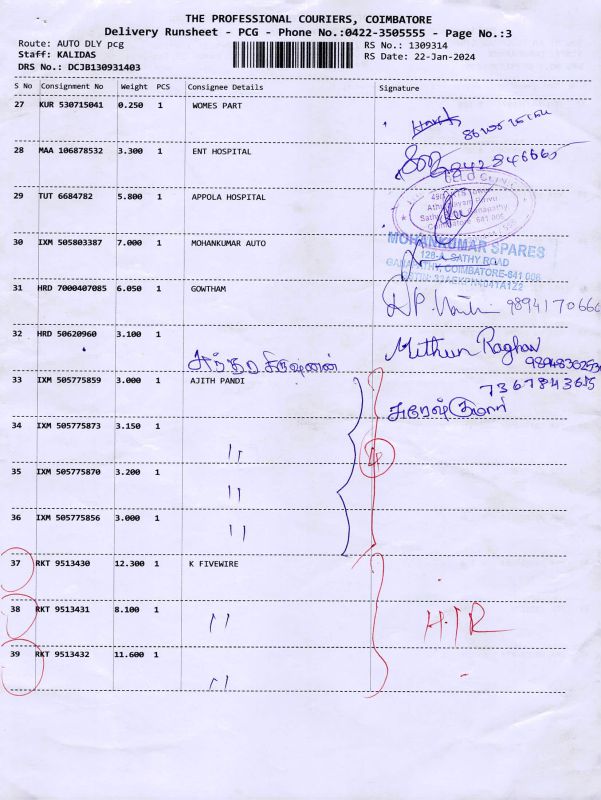 THE PROFESSIONAL COURIERS, COIMBATORE
Delivery Runsheet - PCG - Phone No.:0422-3505555 - Page No.:3
Route: AUTO DLY pcg
Staff: KALIDAS
DRS No.: DCJB130931403
RS No.: 1309314
RS Date: 22-Jan-2024
S No Consignment No Weight PCS Consignee Details Signature
27 KUR 530715041 0.250 1 WOMES PART
28 MAA 106878532 3.300 1 ENT HOSPITAL
29 TUT 6684782 5.800 1 APPOLA HOSPITAL
30 IXM 505803387 7.000 1 MOHANKUMAR AUTO
MOHANKUMAR SPARES
128-A, SATHY ROAD
GANAPATHY, COIMBATORE-641 006
31 HRD 7000407085 6.050 1 GOWTHAM
32 HRD 50620960 3.100 1 Mithun Raghav
33 IXM 505775859 3.000 1 AJITH PANDI
7367843615
34 IXM 505775873 3.150 1 "
35 IXM 505775870 3.200 1 "
36 IXM 505775856 3.000 1 "
37 RKT 9513430 12.300 1 K FIVEWIRE
38 RKT 9513431 8.100 1 " H.I.R
39 RKT 9513432 11.600 1 "